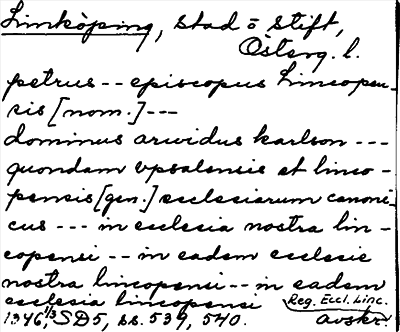 Linköping, stad o stift,
Österg. l.
petrus -- episcopus Lincopen-
sis [nom.] ---
dominus arwidus karlson ---
quondam vpsalensis et linco-
pensis [gen.] ecclesiarum canoni-
cus --- in ecclesia nostra lin-
copensi -- in eadem ecclesie
nostra lincopensi -- in eadem
ecclesia lincopensi Reg. Eccl. Linc.
1346 1/3 SD5, ss. 539, 540. avskr.